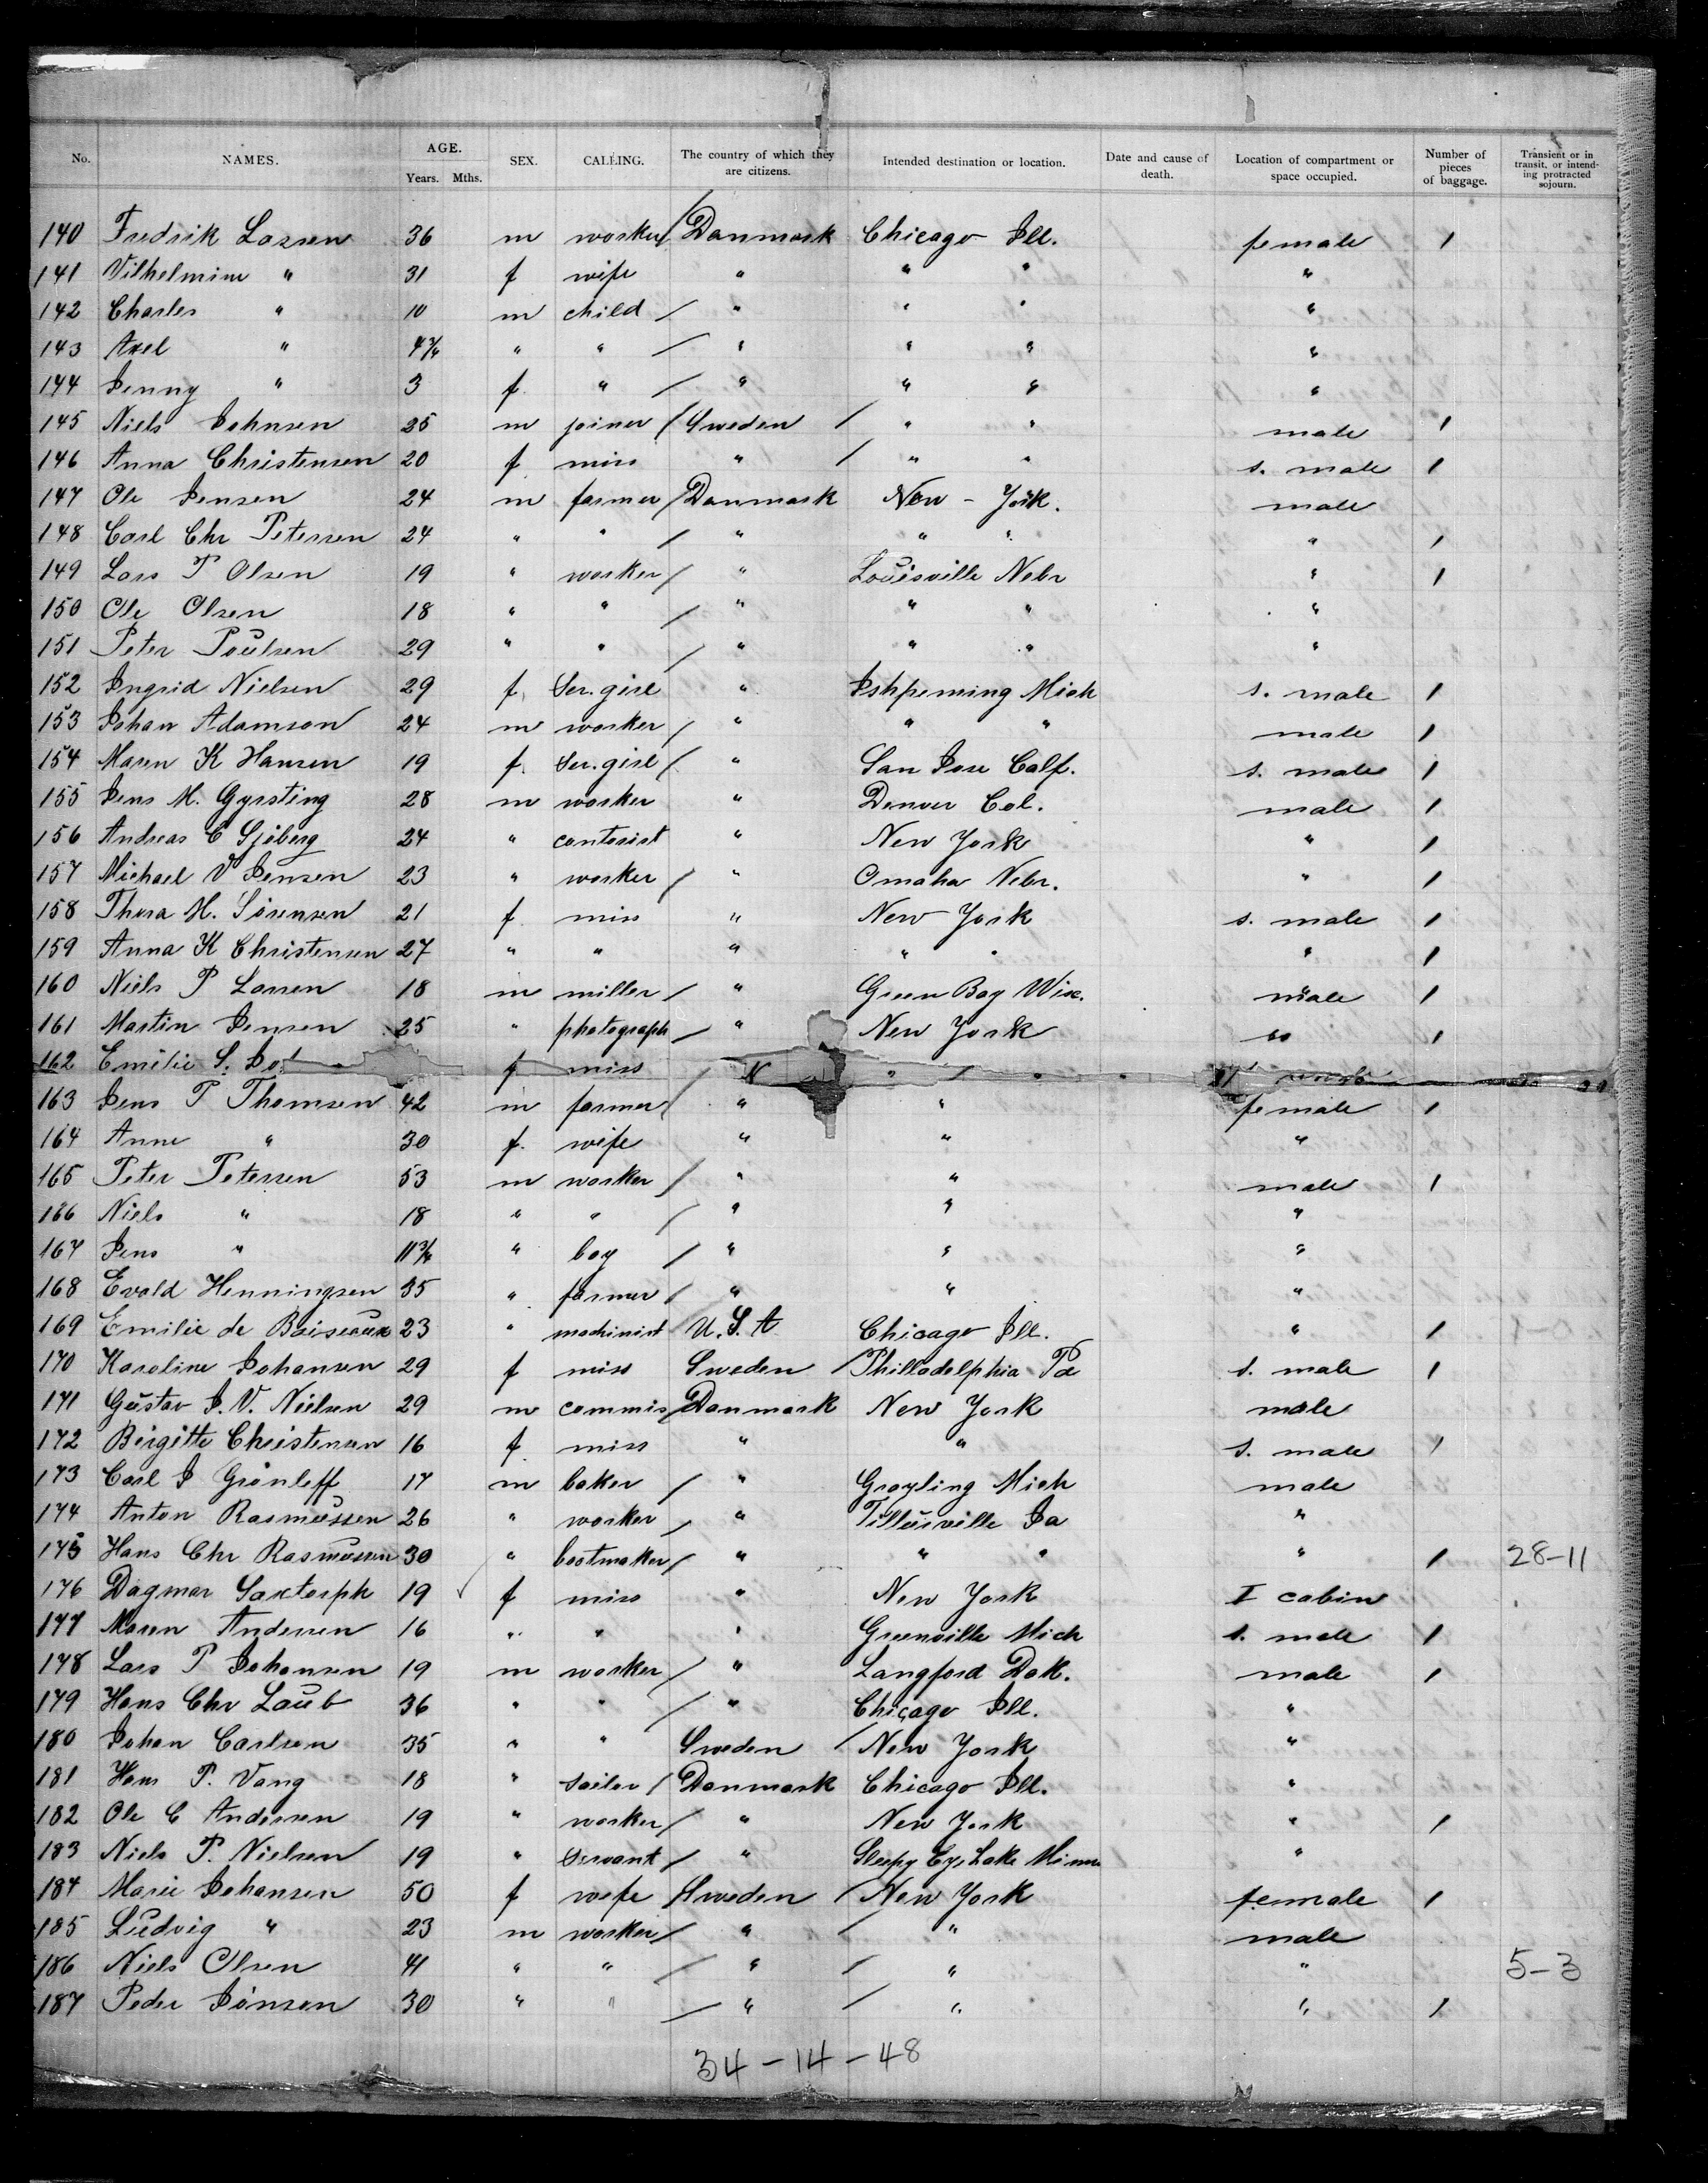 No. NAMES. AGE. Years. Mths. SEX. CALLING. The country of which they are citizens. Intended destination or location. Date and cause of death. Location of compartment or space occupied. Number of pieces of baggage. Transient or in transit, or intending protracted sojourn.
140 Fredrik Larsen 36 m worker / Danmark Chicago Ill. female 1
141 Vilhelmine " 31 f wife " " " "
142 Charles " 10 m child / " " " "
143 Axel " 4 " " / " " " "
144 Jenny " 3 f. " / " " " "
145 Niels Johnsen 25 m joiner / Sweden / " " male 1
146 Anna Christensen 20 f miss " / " " s. male 1
147 Ole Jensen 24 m farmer / Danmark New-York. male
148 Carl Chr Petersen 24 " " / " " " " 1
149 Lars P Olsen 19 " worker / " Louisville Nebr " 1
150 Ole Olsen 18 " " / " " " "
151 Peter Poulsen 29 " " / " " " "
152 Ingrid Nielsen 29 f. Ser. girl " Ishpeming Mich s. male 1
153 Johan Adamson 24 m worker / " " " male 1
154 Maren K Hansen 19 f. Ser. girl / " San Jose Calf. s. male 1
155 Jens M. Gyrsting 28 m worker " Denver Col. male 1
156 Andreas C Sjöberg 24 " contorist " New York " 1
157 Michael V Jensen 23 " worker / " Omaha Nebr. " 1
158 Thora M. Sörensen 21 f. miss " New York s. male 1
159 Anna K Christensen 27 " " " " " " 1
160 Niels P Larsen 18 m miller / " Green Bay Wisc. male 1
161 Martin Jensen 25 " photograph / " New York " 1
162 Emilie S. f miss " "
163 Jens P Thomsen 42 m farmer / " " female 1
164 Anne " 30 f. wife " " "
165 Peter Petersen 53 m worker / " " male 1
166 Niels " 18 " " / " " "
167 Jens " 11 " boy / " " "
168 Evald Henningsen 35 " farmer / " " "
169 Emilie de Boiseaux 23 " machinist U.S.A Chicago Ill. " 1
170 Karoline Johansen 29 f miss Sweden / Philladelphia Pa s. male 1
171 Gustav J. V. Nielsen 29 m commis / Danmark New York male
172 Birgitte Christensen 16 f miss " " s. male 1
173 Carl J Grönleff 17 m baker / " Grayling Mich male
174 Anton Rasmussen 26 " worker / " Tillusville Pa "
175 Hans Chr Rasmussen 30 " bootmaker / " " " " 1 28-11
176 Dagmar Saxtorph 19 f miss " New York I cabin
177 Maren Andersen 16 " " " Greenville Mich s. male 1
178 Lars P Johansen 19 m worker / " Langford Dak. male 1
179 Hans Chr Laub 36 " " / " Chicago Ill. "
180 Johan Carlsen 35 " " Sweden / New York "
181 Hans P. Vang 18 " sailor / Danmark Chicago Ill. "
182 Ole C Andersen 19 " worker / " New York " 1
183 Niels P. Nielsen 19 " Servant / " Sleepy Eye Lake Minn "
184 Marie Johansen 50 f wife Sweden / New York female 1
185 Ludvig " 23 m worker / " / " male
186 Niels Olsen 41 " " / " / " " 5-3
187 Peder Jönsen 30 " " / " / " " 1
34-14-48